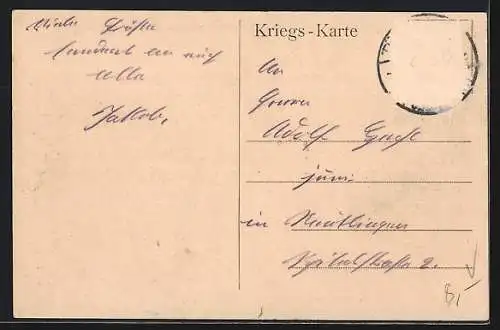 Viele Grüße
sendet an euch
alle
Jakob.
Kriegs-Karte
An
Herrn
Adolf
jun.
in Reutlingen
Spitalstraße 2.
8,-